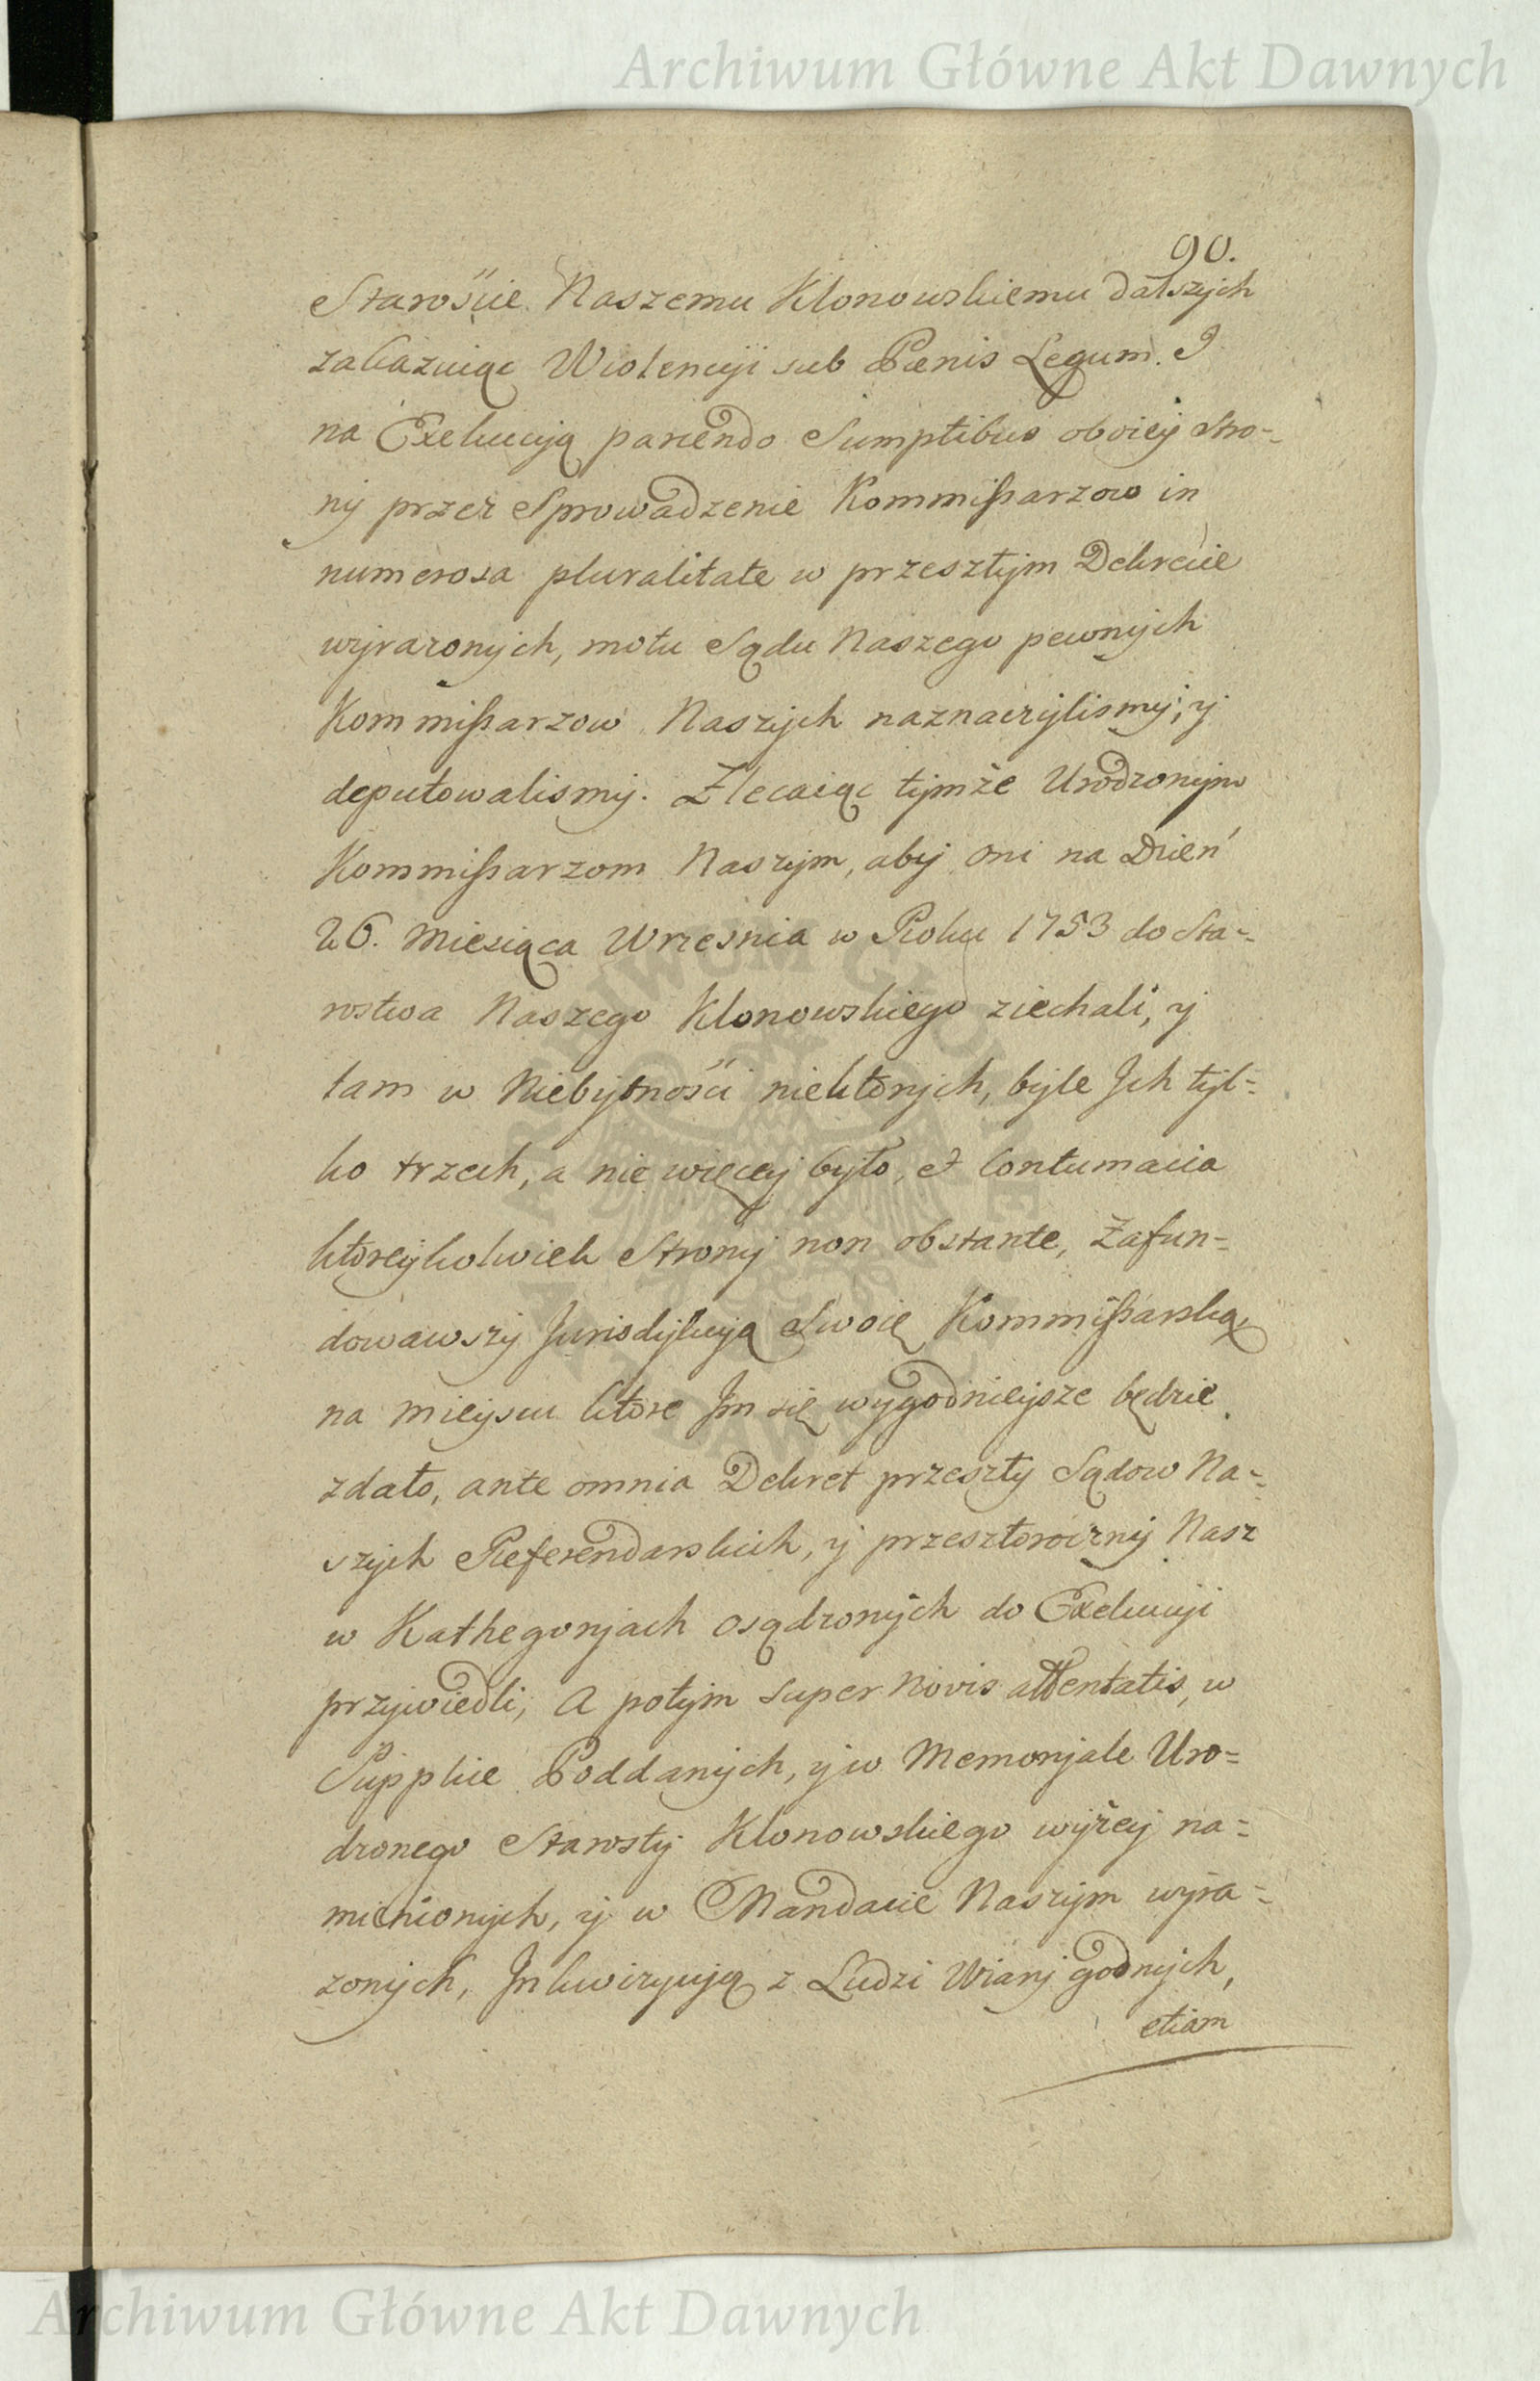 Archiwum Główne Akt Dawnych
90.
Starośćie Naszemu Klonowskiemu dalszych
zakazuiąc Wiolencyi sub Pœnis Legum. I
na Exekucyią parcendo Sumptibus oboiey Stro-
ny przez Sprowadzenie Kommissarzow in
numerosa pluralitate w przeszłym Dekrecie
wyrazonych, motu Sądu Naszego pewnych
Kommissarzow Naszych naznaczylismy, y
deputowalismy. Zlecaiąc tymże Urodzonym
Kommissarzom Naszym, aby oni na Dzień
26. Miesiąca Wrzesnia w Roku 1753 do Sta-
rostwa Naszego Klonowskiego ziechali, y
tam w Niebytnośći niektorych, byle Jch tyl-
ko trzech, a nie więcey było, et Contumacia
ktoreykolwiek Strony non obstante, Zafun-
dowawszy Jurisdykcyą Swoię Kommissarską,
na mieyscu ktore Jm się wygodnieysze będzie
zdało, ante omnia Dekret przeszły Sądow Na-
szych Referendarskich, y przeszłoroczny Nasz
w Kathegoryach osądzonych do Exekucyi
przywiedli, A potym super Novis attentatis, w
Supplice Poddanych, y w Memoryale Uro-
dzonego Starosty Klonowskiego wyżey na-
mienionych, y w Mandacie Naszym wyra-
zonych, Jnkwizycyią z Ludzi Wiary godnych,
etiam
Archiwum Główne Akt Dawnych